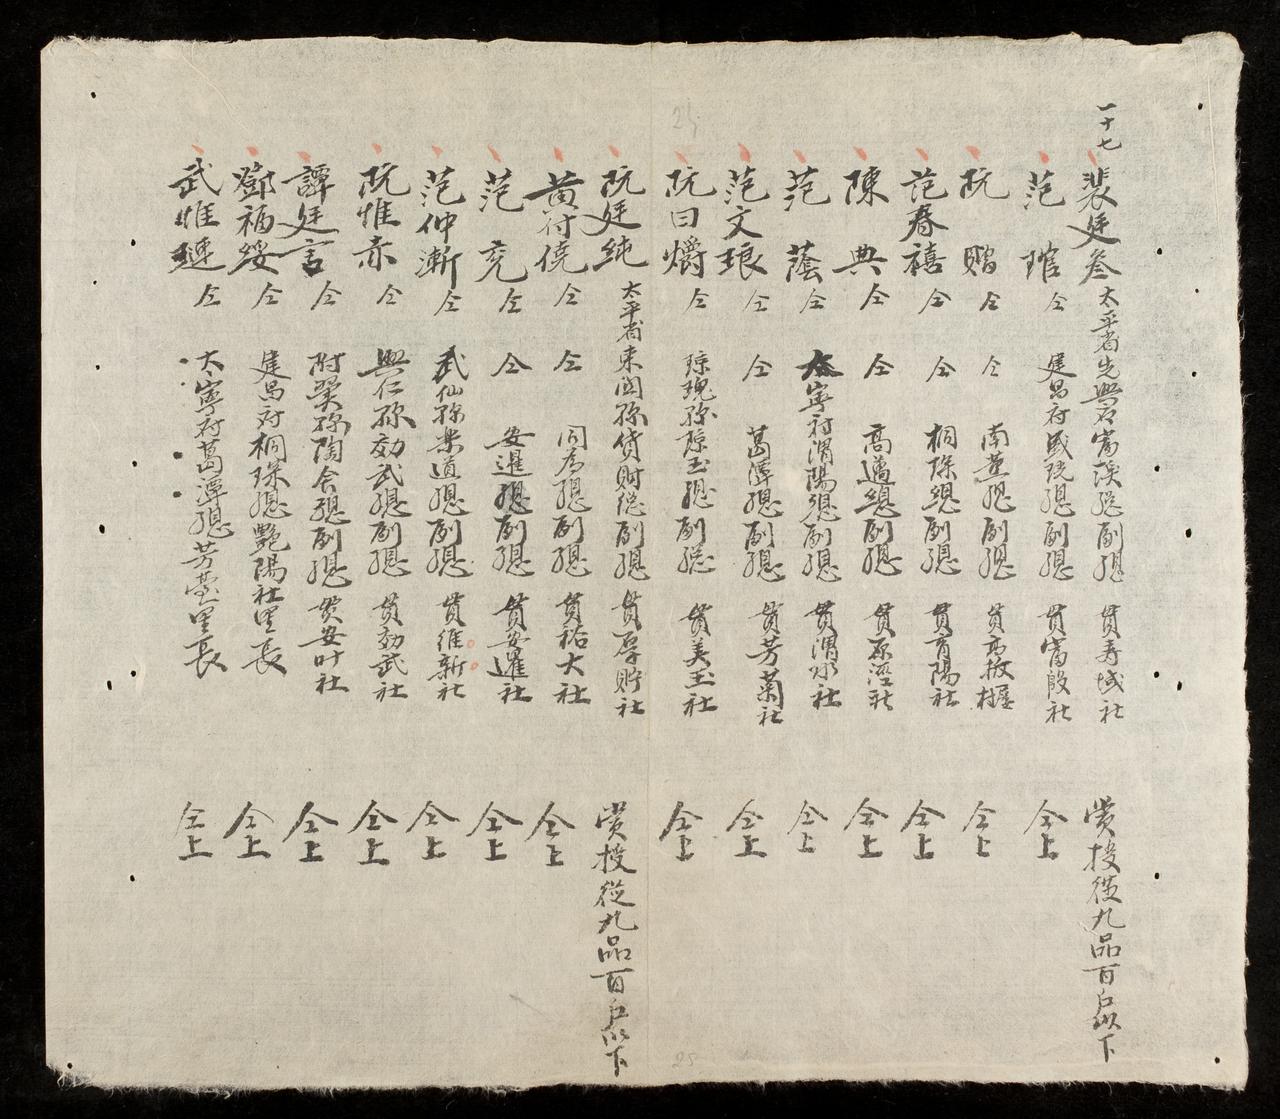 一十七 裴廷叄 太平省先興府富溪總副總 貫壽域社 赏授從九品百戶以下
范琯 仝 建昌府盛琓總副總 貫富殷社 仝上
阮賵 仝 仝 南董總副總 貫高拔 仝上
范春禧 仝 仝 桐琛總副總 貫育陽社 仝上
陳典 仝 仝 高邁總副總 貫原涇社 仝上
范蔭 仝 太寧府渭陽總副總 貫渭水社 仝上
范文琅 仝 仝 葛潭總副總 貫芳菊社 仝上
阮曰爝 仝 瓊瑰縣瓊玉總副總 貫美玉社 仝上
阮廷純 太平省東關縣貨財總副總 貫厚貯社 赏授從九品百戶以下
黃符僥 仝 仝 同為總副總 貫裕大社 仝上
范 仝 仝 安暹總副總 貫安暹社 仝上
范仲漸 仝 武仙縣樂道總副總 貫維新社 仝上
阮惟赤 仝 興仁縣効武總副總 貫効武社 仝上
譚廷言 仝 附翼縣陶舍總副總 貫安叶社 仝上
鄧福綏 仝 建昌府桐琛總艷陽社里長 仝上
武惟璉 仝 太寧府葛潭總芳臺里長 仝上